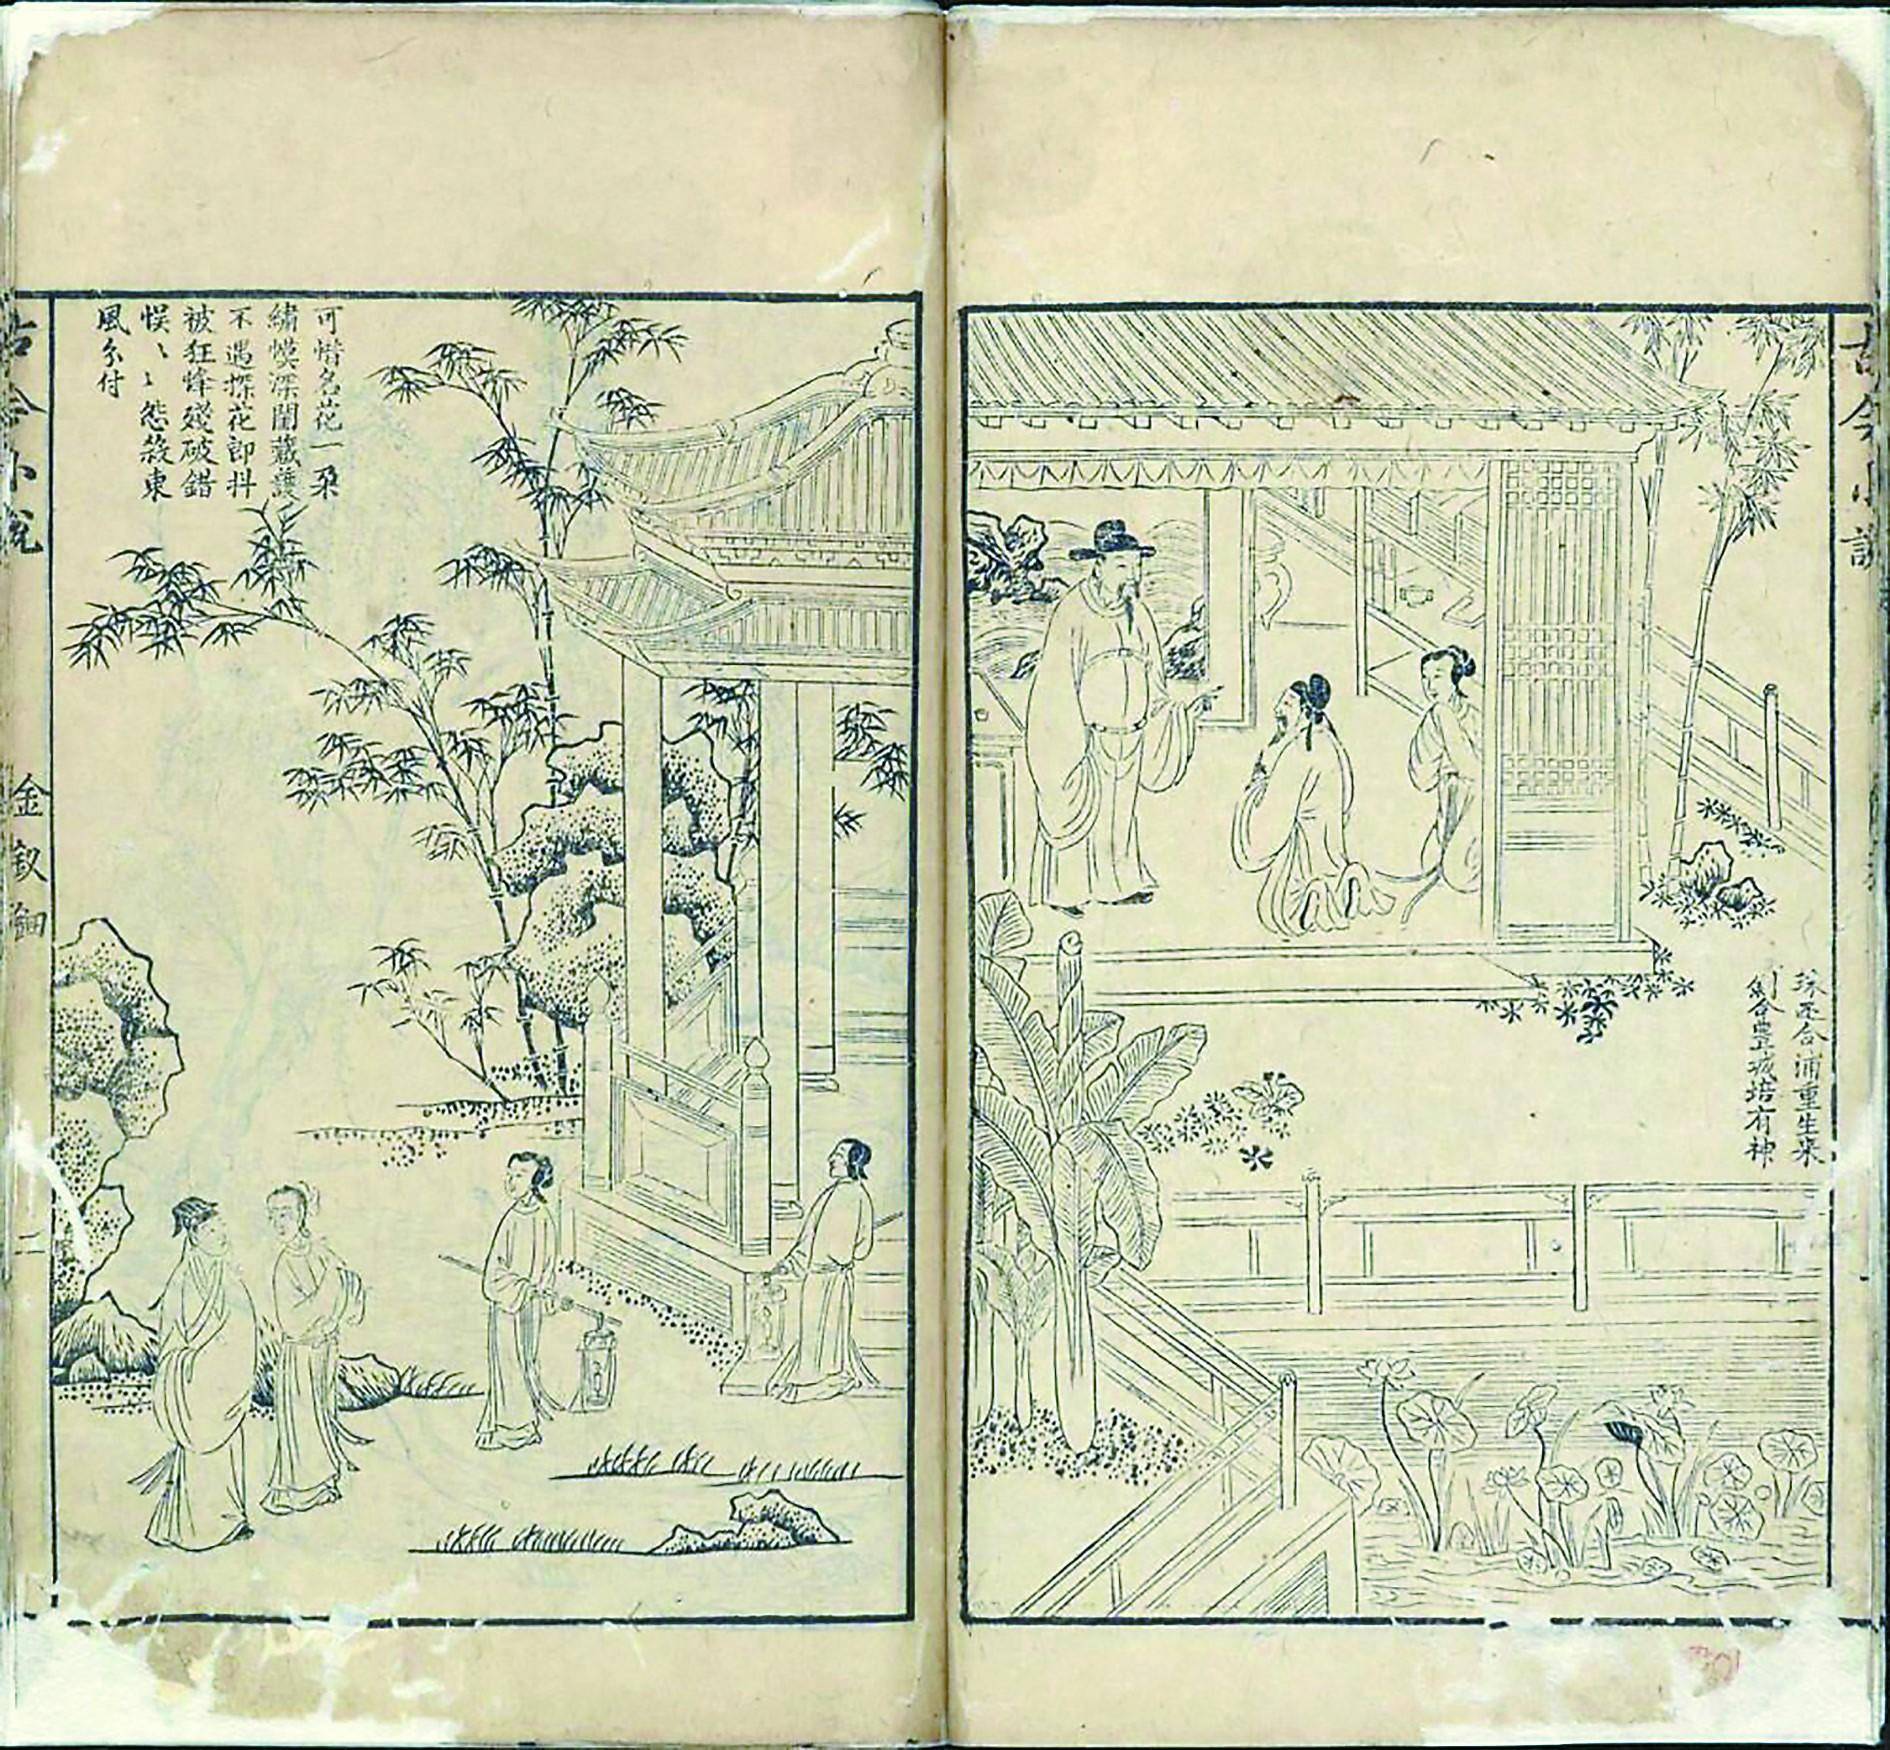 古今小說
珠还合浦重生采
劍合豊城倍有神
可惜名花一朶
繡幙深閨藏護
不遇探花郎抖
被狂蜂殘破錯
悮〻〻怨殺東
風分付
古今小說
金釵鈿
二